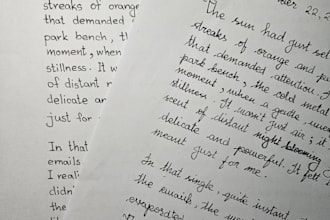 streaks of orange
that demanded
park bench, th
moment, when
stillness. It w
of distant n
delicate an
just for
In that
emails
I reali
didn'
the
22, 2
The sun had just set
streaks of orange and p
that demanded attention. I
park bench, the cold metal
moment, when a gentle
stillness. It wasn't just air; it
scent of distant night-blooming
delicate and powerful. It felt
meant just for me.
In that single, quiet instant
the emails, the
evaporated